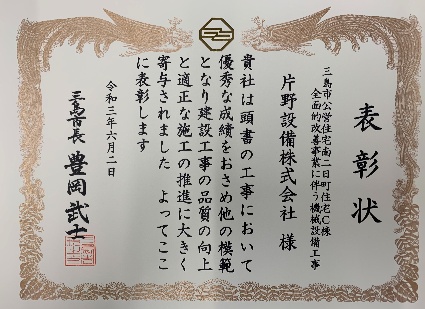 表彰状
三島市公営住宅南二日町住宅C棟
全面的改善事業に伴う機械設備工事
片野設備株式会社 様
貴社は頭書の工事において
優秀な成績をおさめ他の模範
となり建設工事の品質の向上
と適正な施工の推進に大きく
寄与されました よってここ
に表彰します
令和三年六月二日
三島市長 豊岡武士